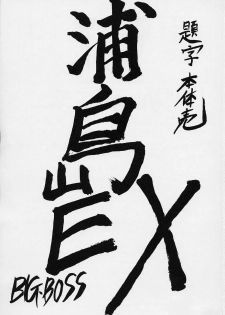 題字 本体壱
浦島EX
BIG・BOSS